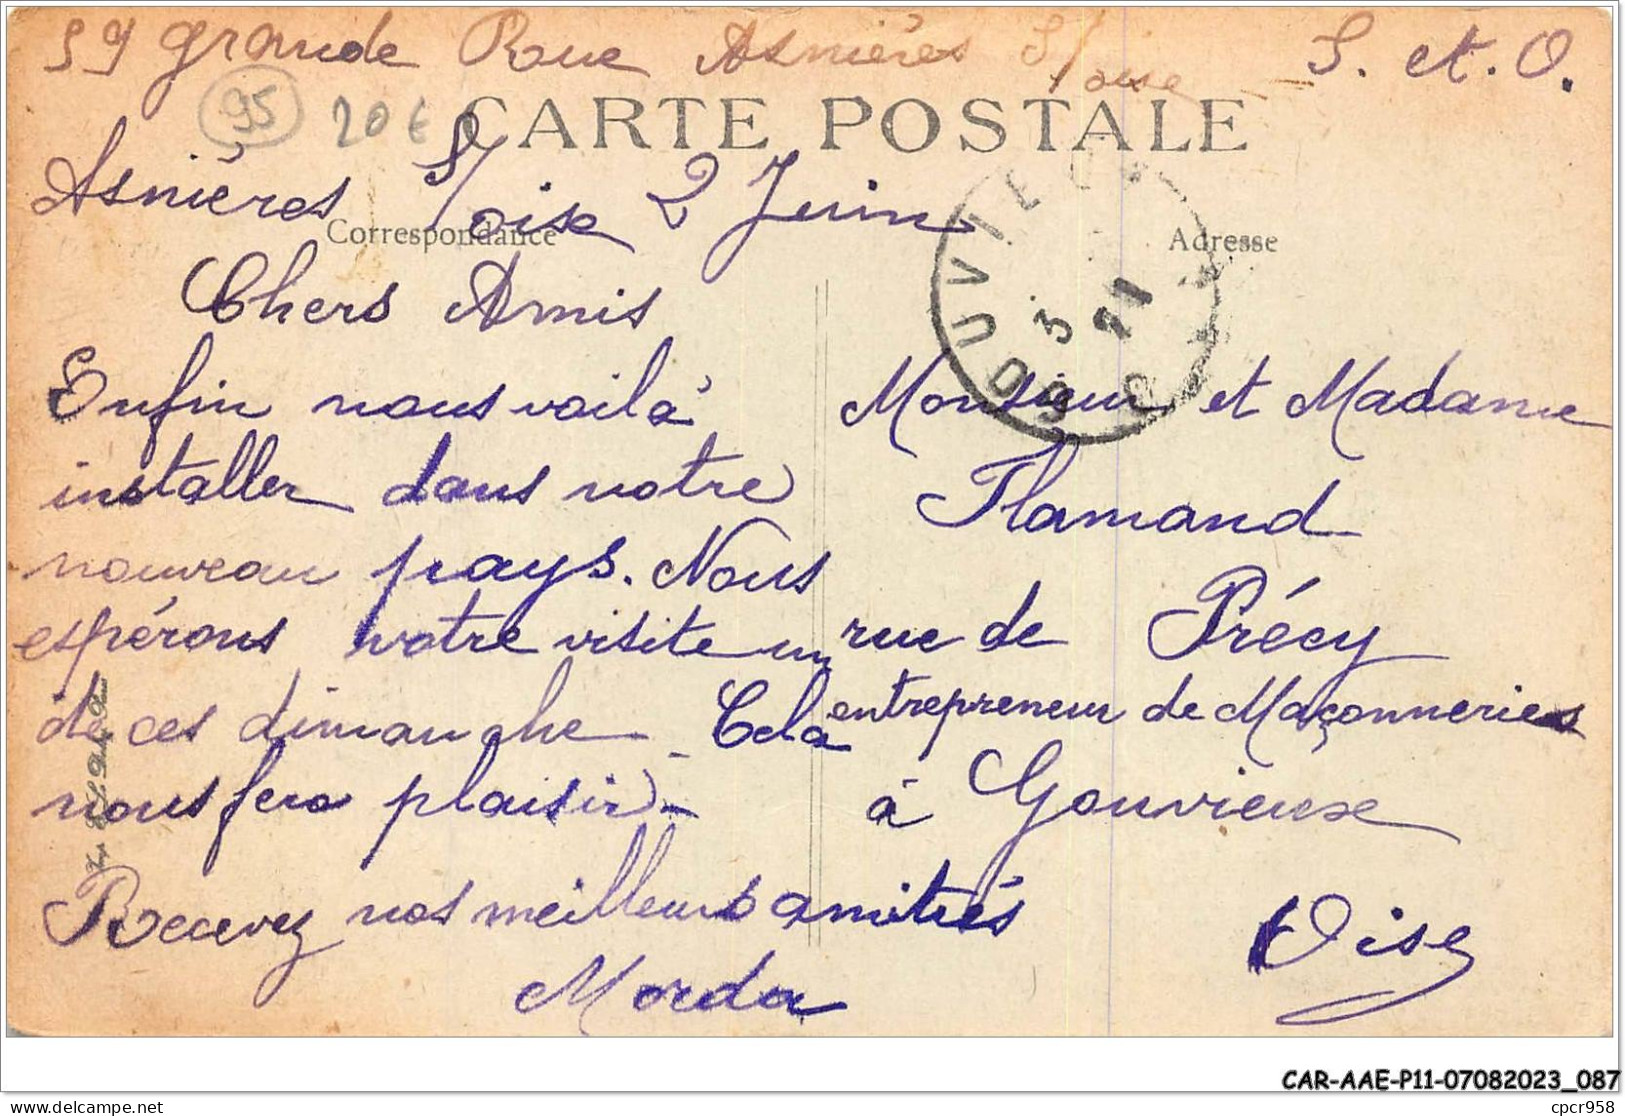 59 grande Rue Asnières S/oise S. et. O.
95 20€
CARTE POSTALE
Asnières S/oise 2 Juin
Correspondance
Adresse
Chers Amis
Enfin nous voilà
installer dans notre
nouveau pays. Nous
espérons votre visite un
de ces dimanche. Celà
nous fera plaisir.
Recevez nos meilleurs amitiés
Morda
Monsieur et Madame
Flamand
rue de Précy
entrepreneur de Maçonneries
à Gouvieuse
Oise
GOUVIEUX
3
21
CAR-AAE-P11-07082023_087
delcampe.net
cpcr958